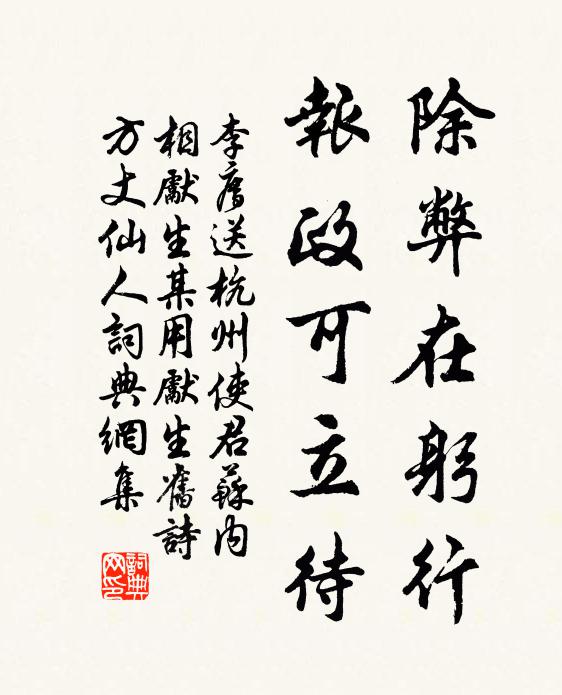 除弊在躬行
報政可立待
李廌送杭州使君蘇内
相獻生某用獻生舊詩
方丈仙人詞典網集
詞典網印